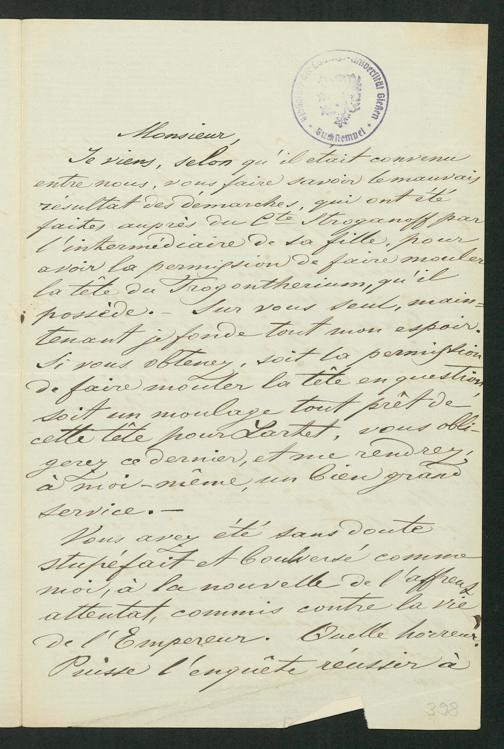 Monsieur,
Je viens, selon qu'il était convenu
entre nous, vous faire savoir le mauvais
résultat des démarches, qui ont été
faites auprès du Cte Stroganoff par
l'intermédiaire de sa fille, pour
avoir la permission de faire mouler
la tête du Trogontherium, qu'il
possède. – Sur vous seul, main-
tenant je fonde tout mon espoir.
Si vous obtenez, soit la permission
de faire mouler la tête en question,
soit un moulage tout prêt de
cette tête pour Lartet, vous obli-
gerez ce dernier, et me rendrez,
à moi-même, un bien grand
service. –
Vous avez été sans doute
stupéfait et boulversé comme
moi, à la nouvelle de l'affreux
attentat, commis contre la vie
de l'Empereur. Quelle horreur!
Puisse l'enquête réussir à
398